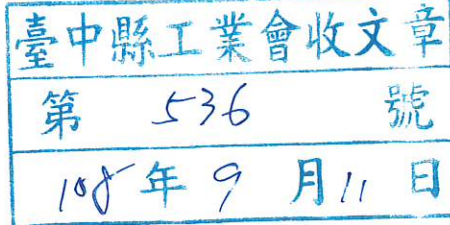 臺中縣工業會收文章
第 536 號
108年9月11日